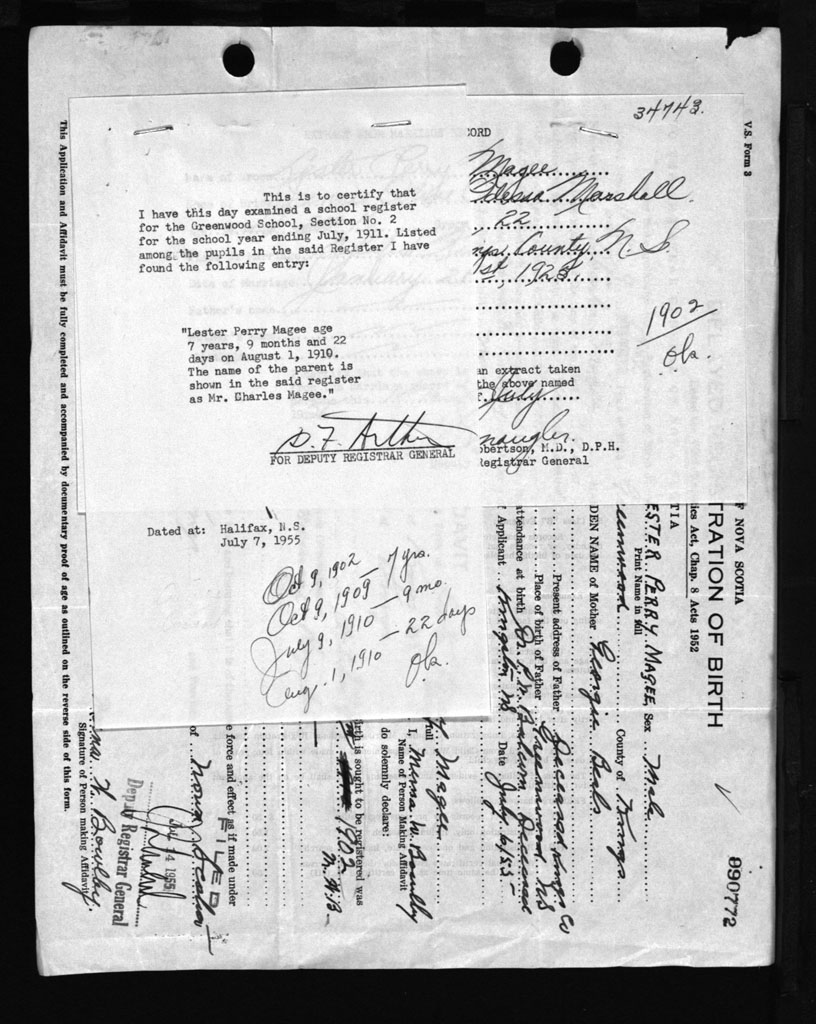 34743.
V.S. Form 3
This is to certify that
I have this day examined a school register
for the Greenwood School, Section No. 2
for the school year ending July, 1911. Listed
among the pupils in the said Register I have
found the following entry:
"Lester Perry Magee age
7 years, 9 months and 22
days on August 1, 1910.
The name of the parent is
shown in the said register
as Mr. Charles Magee."
FOR DEPUTY REGISTRAR GENERAL
Dated at: Halifax, N.S.
July 7, 1955
Oct 9, 1902
Oct 9, 1909 — 7 yrs.
July 9, 1910 — 9 mo.
Aug. 1, 1910 — 22 days
Ok.
ORD
Magee
Marshall
22
County N.S.
1st, 1928.
1902
Ok.
an extract taken
the above named
Judy
naugler
obertson, M.D., D.P.H.
Registrar General
890772
TRATION OF BIRTH
ies Act, Chap. 8 Acts 1952
F NOVA SCOTIA
TIA
ESTER PERRY MAGEE, Sex Male
Print Name in full
eenwood County of Kings
DEN NAME of Mother Georgie Beals
Present address of Father Deceased Kings Co
Place of birth of Father Greenwood NS
attendance at birth Dr. Deceased
Applicant Kingston NS Date July 6/55
Magee
full
I, W. Bowlby
Name of Person Making Affidavit
do solemnly declare:
irth is sought to be registered was
1902
W.B.
e force and effect as if made under
of Nova Scotia
FILED
Jul 14 1955
Deputy Registrar General
W. Bowlby.
Signature of Person making Affidavit
This Application and Affidavit must be fully completed and accompanied by documentary proof of age as outlined on the reverse side of this form.